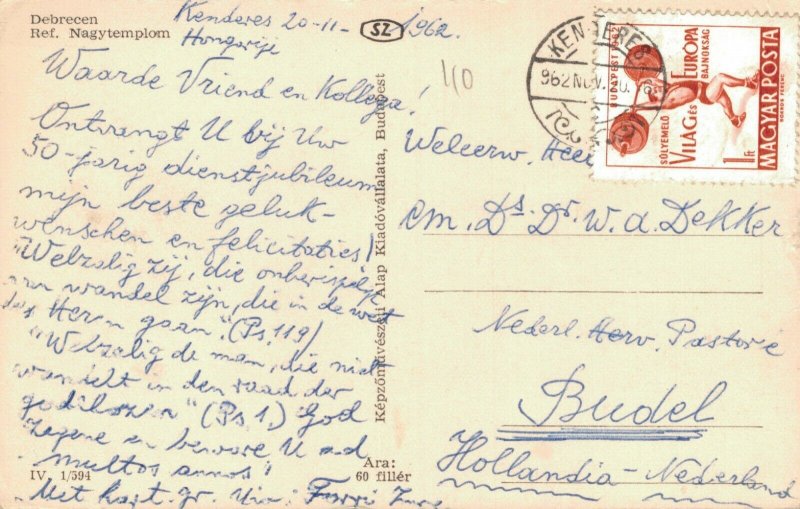 Debrecen
Ref. Nagytemplom
Kenderes 20-11-1962.
Hongarije
SZ
Waarde Vriend en Kollega!
Ontvangt U bij Uw
50-jarig dienstjubileum
mijn beste geluk-
wenschen en felicitaties!
"Welzalig zij, die onberispelijk
van wandel zijn, die in de wet
des Heren gaan". (Ps. 119)
"Welzalig de man, die niet
wandelt in den raad der
godlozen" (Ps 1.) God
zegene en beware U ad
"multos annos"
Met hart. gr. Uw:
IV. 1/594
Ára:
60 fillér
Képzőművészeti Alap Kiadóvállalata, Budapest
110
KENDERES
962 NOV. 20.
BUDAPEST 1962
SÚLYEMELŐ
VILÁG ÉS
EURÓPA
BAJNOKSÁG
1 Ft
MAGYAR POSTA
Weleerw.
em. Ds. Dr. W. a. Dekker
Nederl. Herv. Pastorie
Budel
Hollandia - Nederland